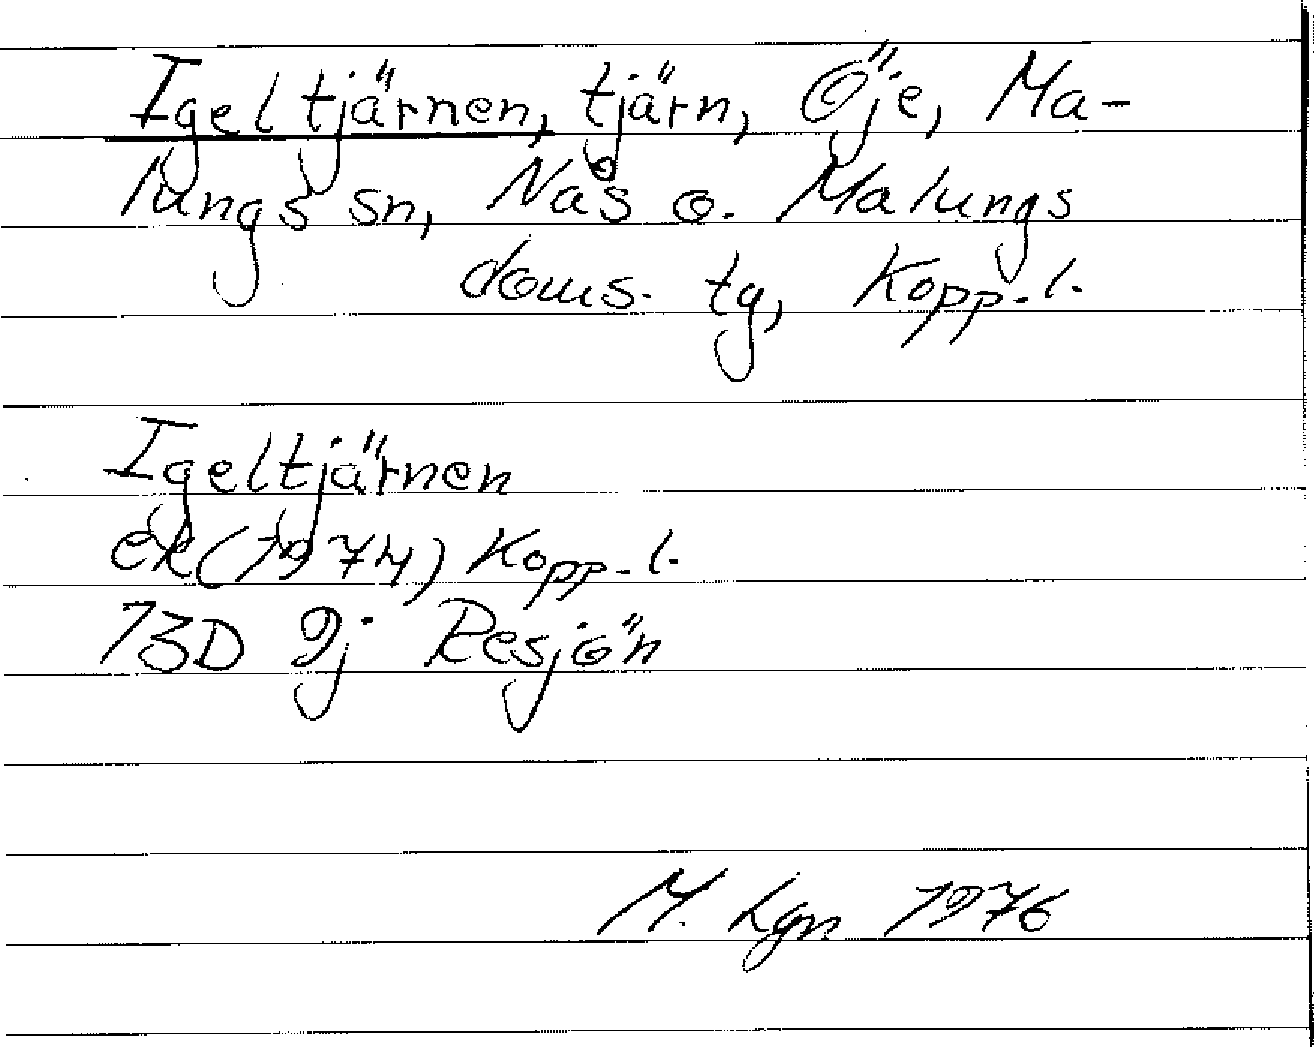 Igeltjärnen, tjärn, Öje, Ma-
lungs sn, Nås o. Malungs
doms. tg, Kopp. l.
Igeltjärnen
ek (1974) Kopp. l.
13D 9j Resjön
M. Lgn 1976